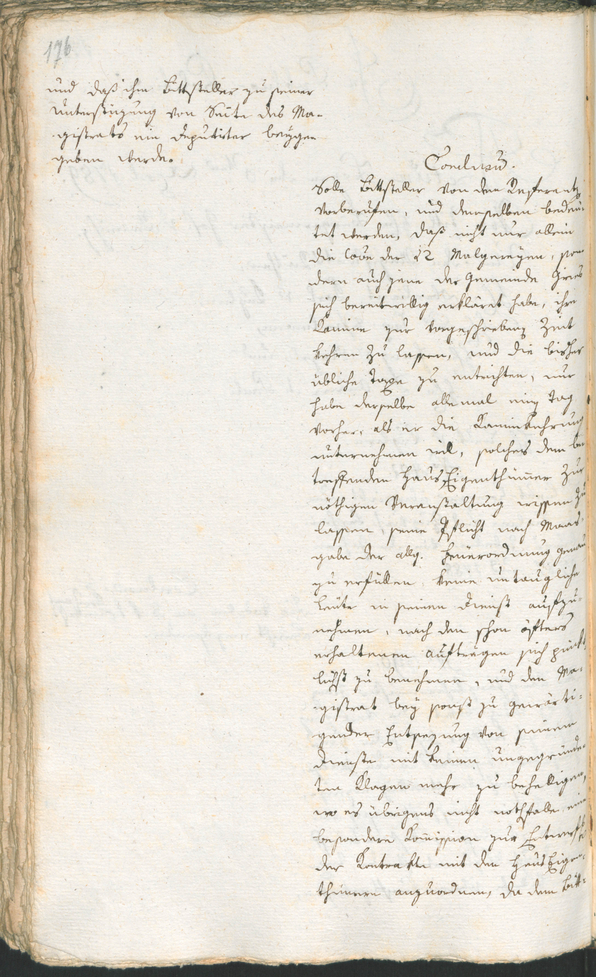 176
und daß ihm Bittsteller zu seiner
Unterstüzung von Seite des Ma-
gistrats ein Deputirter beyge-
geben werde.
Conclusum.
Solle Bittsteller von dem Referenten
vorberufen, und demselben bedeu-
tet werden, daß nicht nur allein
die löbe der 22 Malgereyen, son
dern auch jene der Gemeinde Gries
sich bereitwillig erkläret habe, ihre
Kamine zur vorgeschrieben Zeit
kehren zu lassen, und die bisher
übliche Taxe zu entrichten, nur
habe derselbe allemal einen Tag
vorher, als er die Kaminkehrung
unternehmen will, solches dem be
treffenden HausEigenthümer zur
nöthigen Veranstaltung wissen zu
lassen, seine Pflicht nach Maas-
gabe der allg. Feuerordnung genau
zu erfüllen, keine untaugliche
Leute in seinen Dienst aufzu-
nehmen, nach den schon öfters
erhaltenen Aufträgen sich pünkt
lichst zu benehmen, und den Ma-
gistrat bey sonst zu gewärti-
gender Entsezung von seinem
Dienste mit keinen ungegründe
ten Klagen mehr zu behelligen,
wo es übrigens nicht nothfalle, eine
besondere Komission zur Entwerf
der Kontrakte mit den HausEigen-
thümern anzuordnen, da dem Bitt-